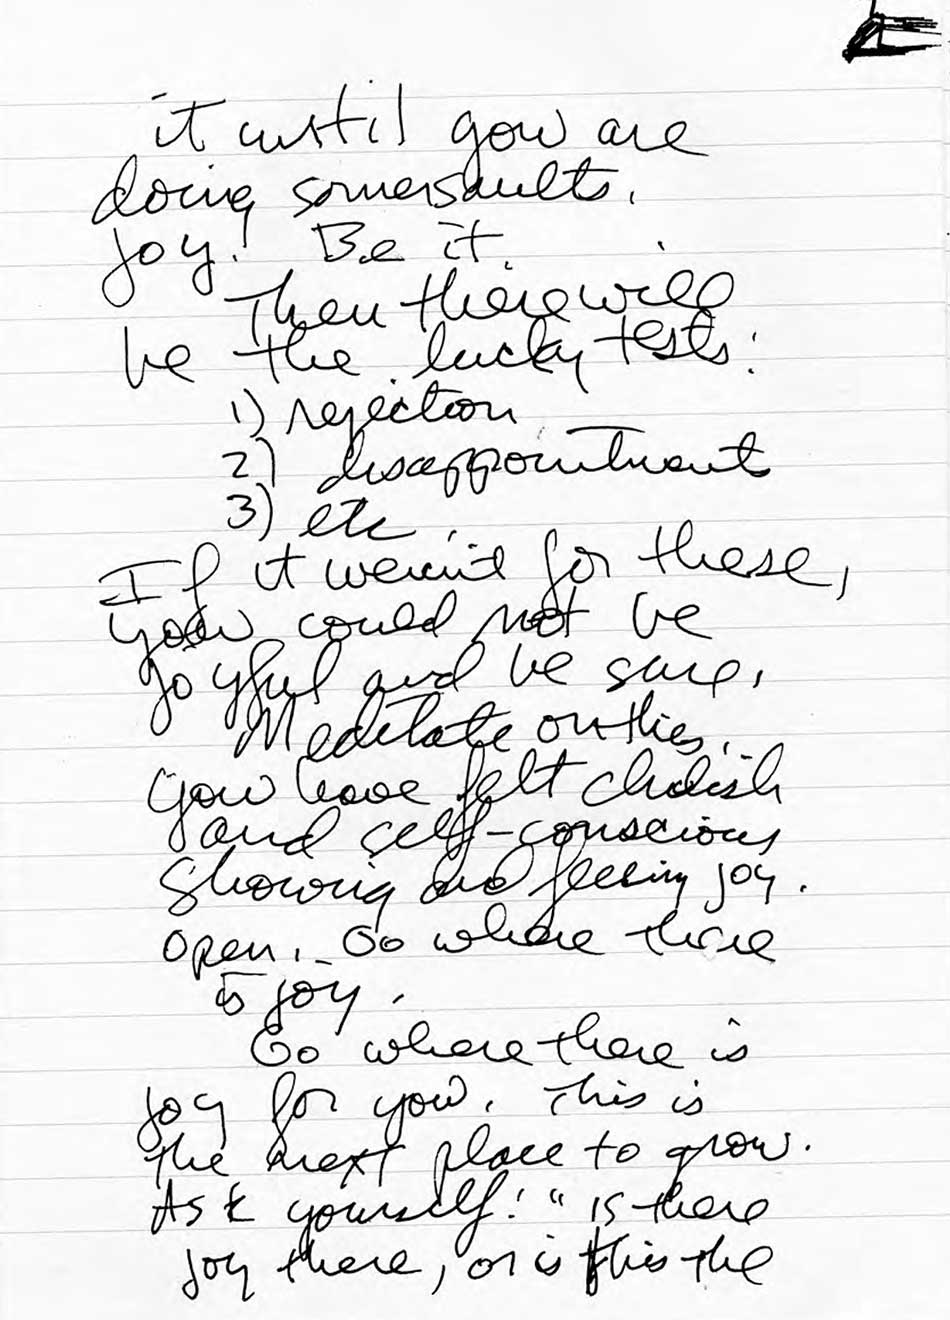 it until you are
doing somersaults.
Joy! Be it.
Then there will
be the lucky tests:
1) rejection
2) disappointment
3) etc.
If it weren't for these,
you could not be
joyful and be sure.
Meditate on this.
You have felt childish
and self-conscious
showing and feeling joy.
Open. Go where there
is joy.
Go where there is
joy for you. This is
the next place to grow.
Ask yourself: "Is there
joy there, or is this the